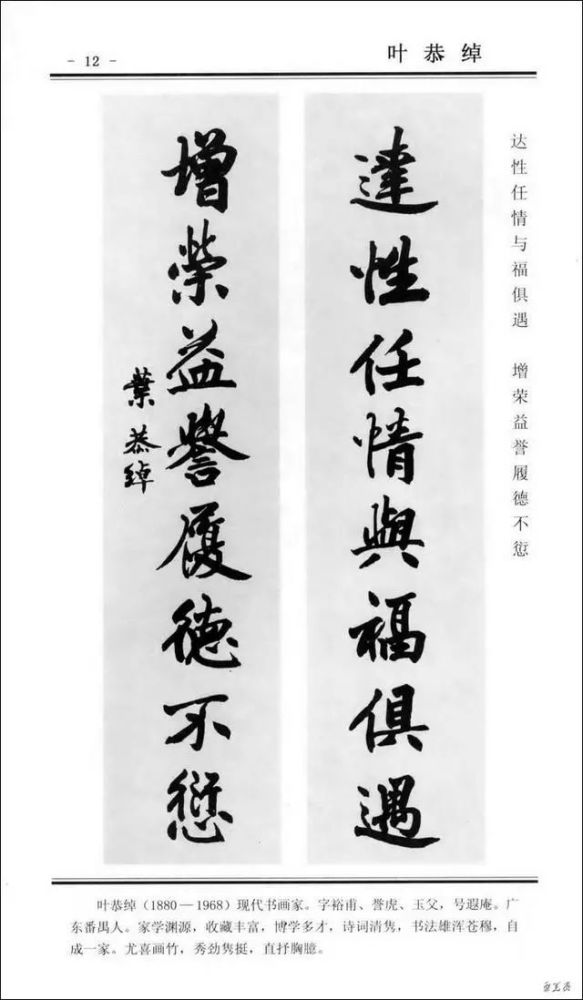 - 12 -
叶恭绰
達性任情與福俱遇
增榮益譽履德不愆
葉恭綽
达性任情与福俱遇 增荣益誉履德不愆
叶恭绰（1880—1968）现代书画家。字裕甫、誉虎、玉父，号遐庵。广
东番禺人。家学渊源，收藏丰富，博学多才，诗词清隽，书法雄浑苍穆，自
成一家。尤喜画竹，秀劲隽挺，直抒胸臆。